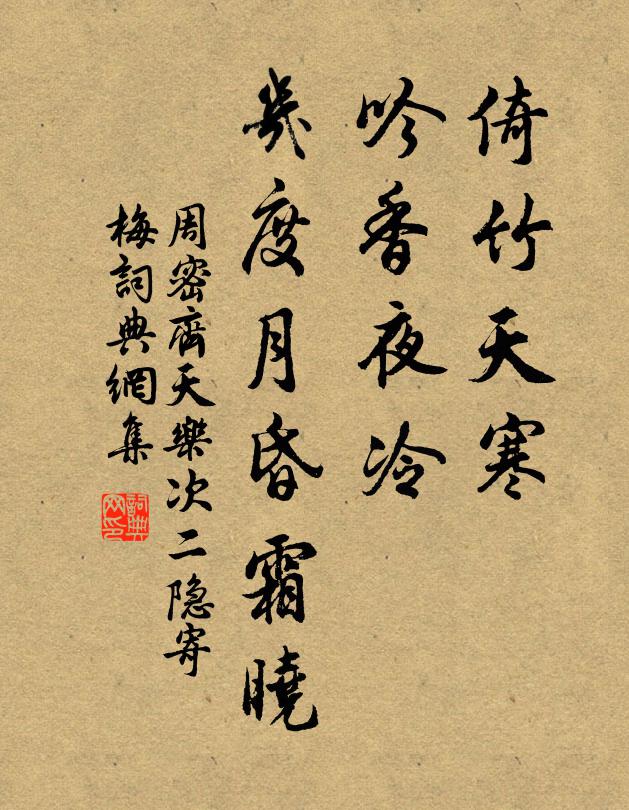 倚竹天寒
吟香夜冷
幾度月昏霜曉
周密齊天樂次二隐寄
梅詞典網集
詞典网印